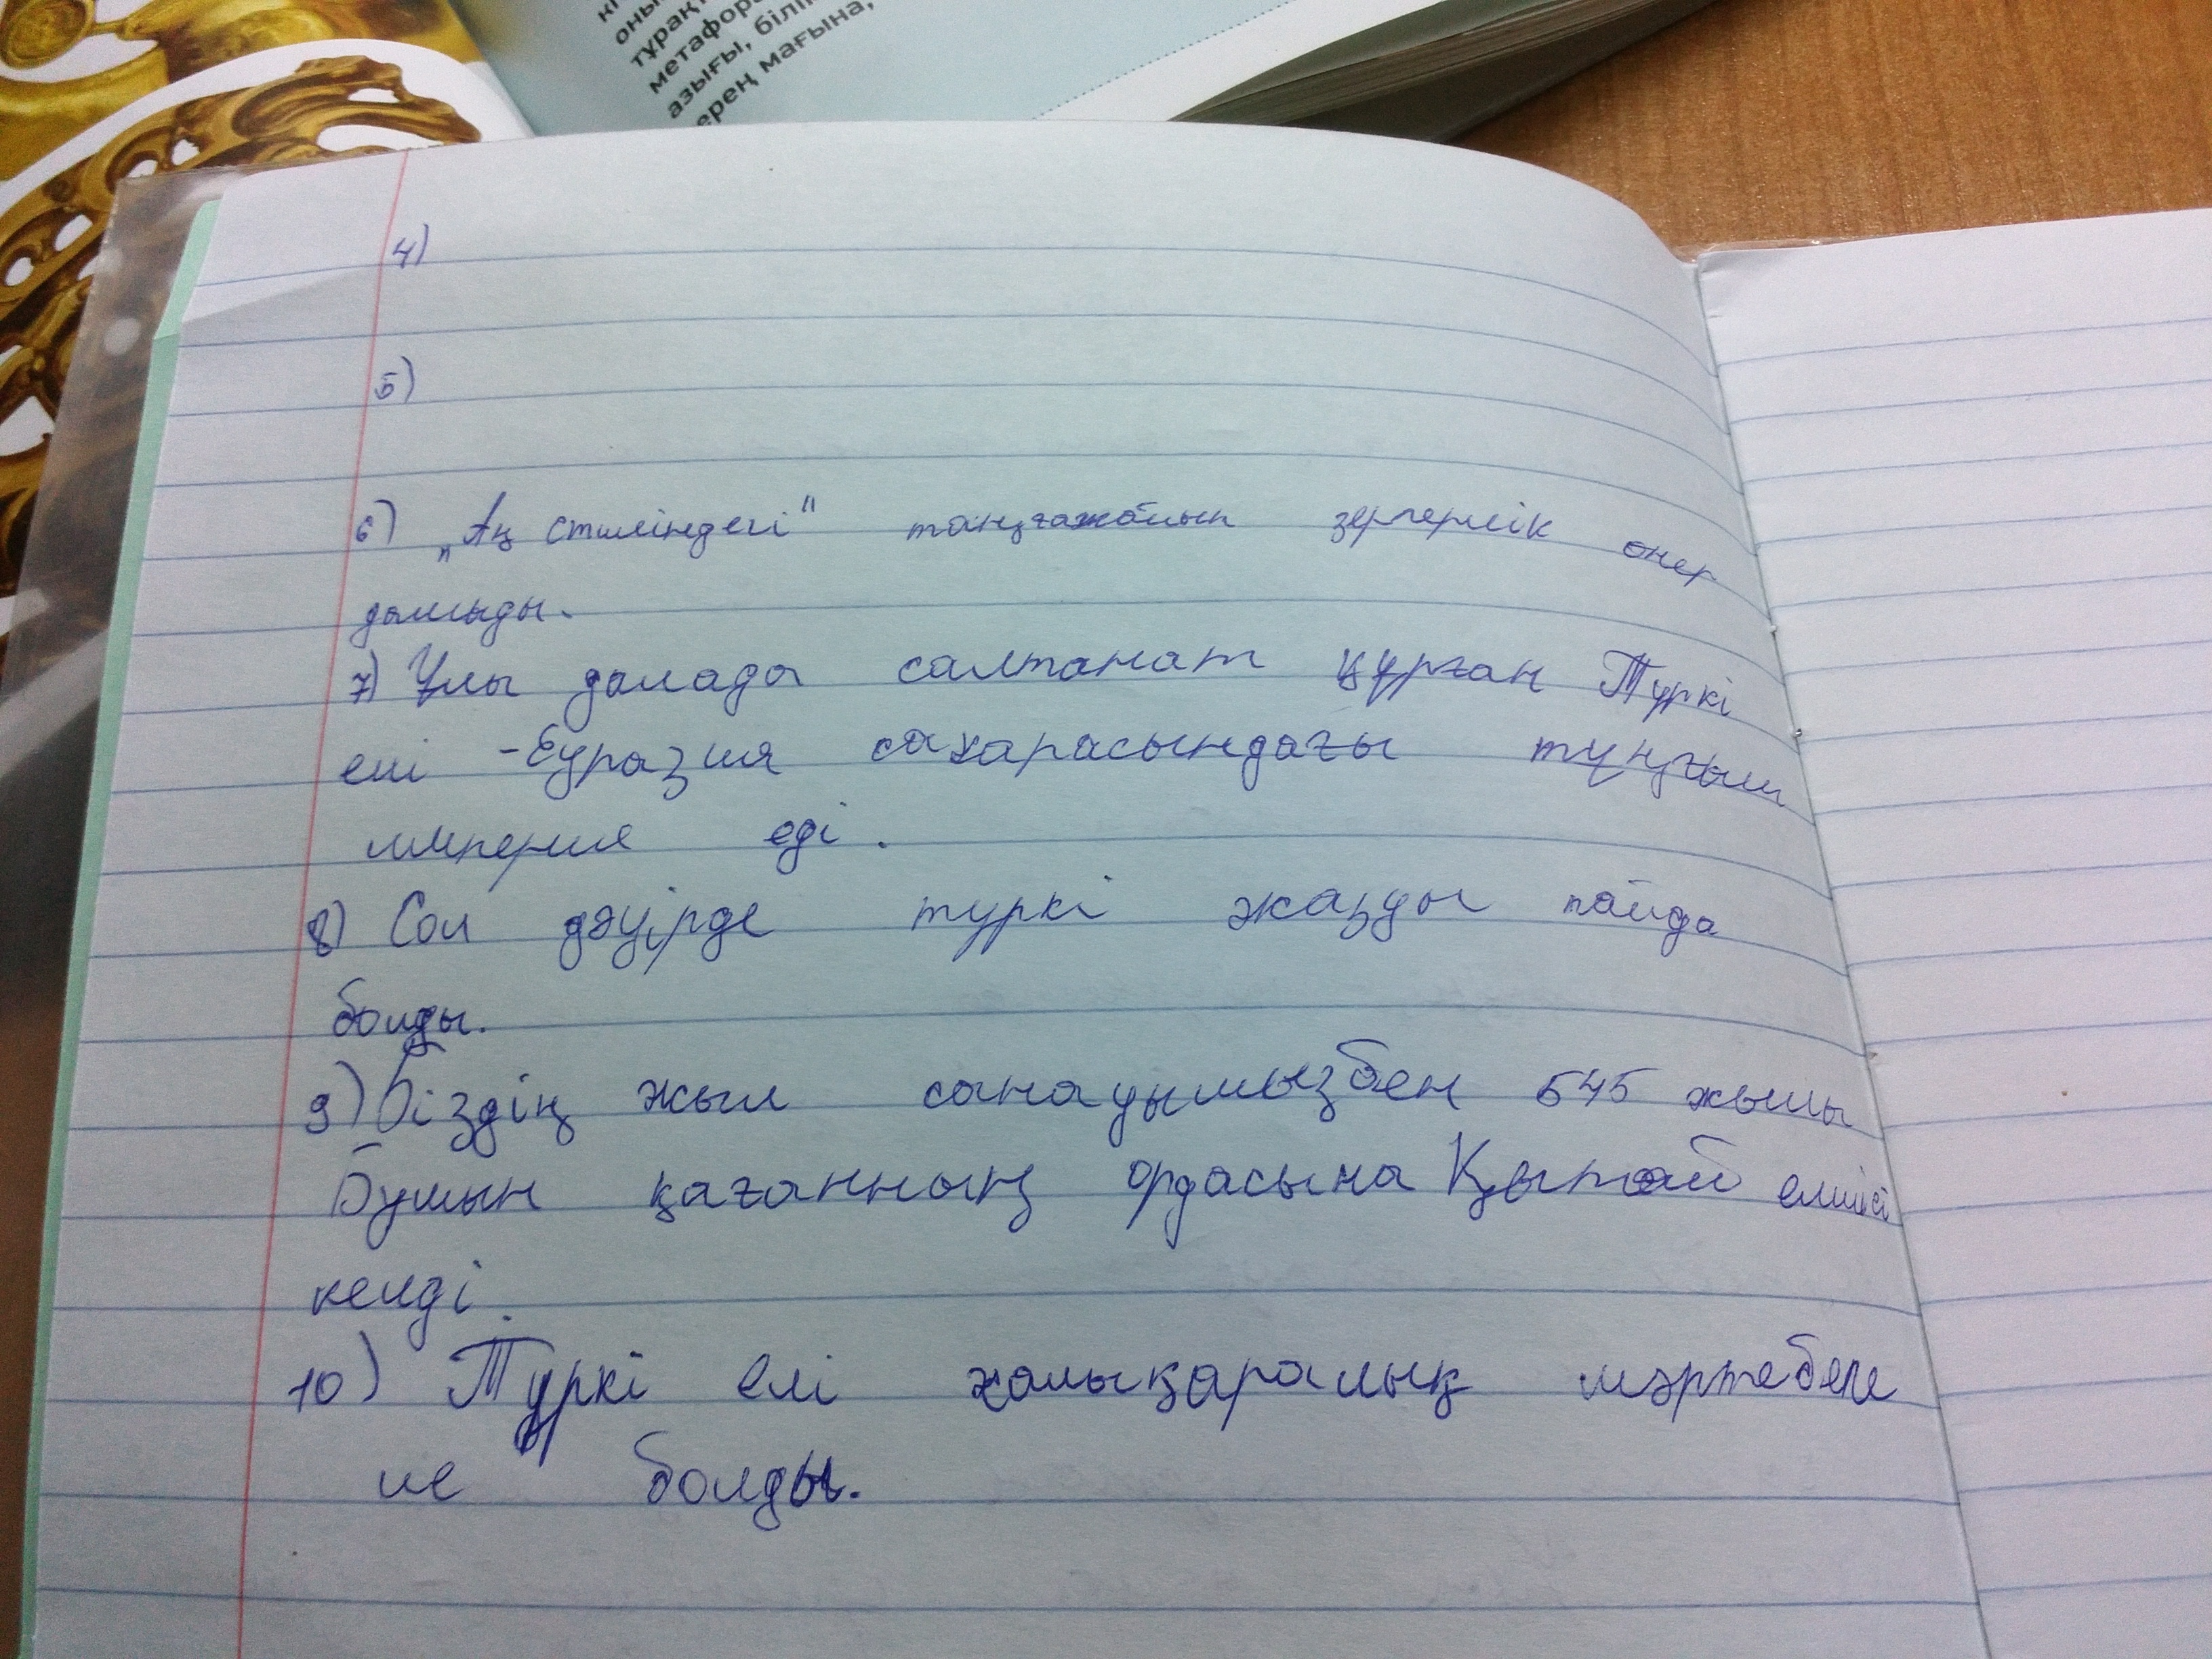 оның
тұрақ
метафора
азығы, білім
ерең мағына,
4)
5)
6) „Аң стиліндегі" таңғажайып зергерлік өнер
дамыды.
7) Ұлы далада салтанат құрған Түркі
елі -Еуразия сахарасындағы тұңғыш
империя еді.
8) Сол дәуірде түркі жазды пайда
болды.
9) Біздің жыл санауымызбен 545 жылы
Бумын қағанның ордасына Қытай елшісі
келді.
10) Түркі елі халықаралық мәртебеге
ие болды.